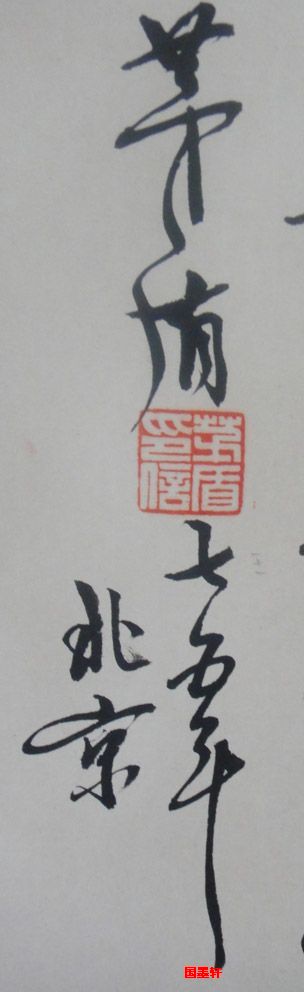 茅盾
茅盾
印信
七五年
北京
国墨轩